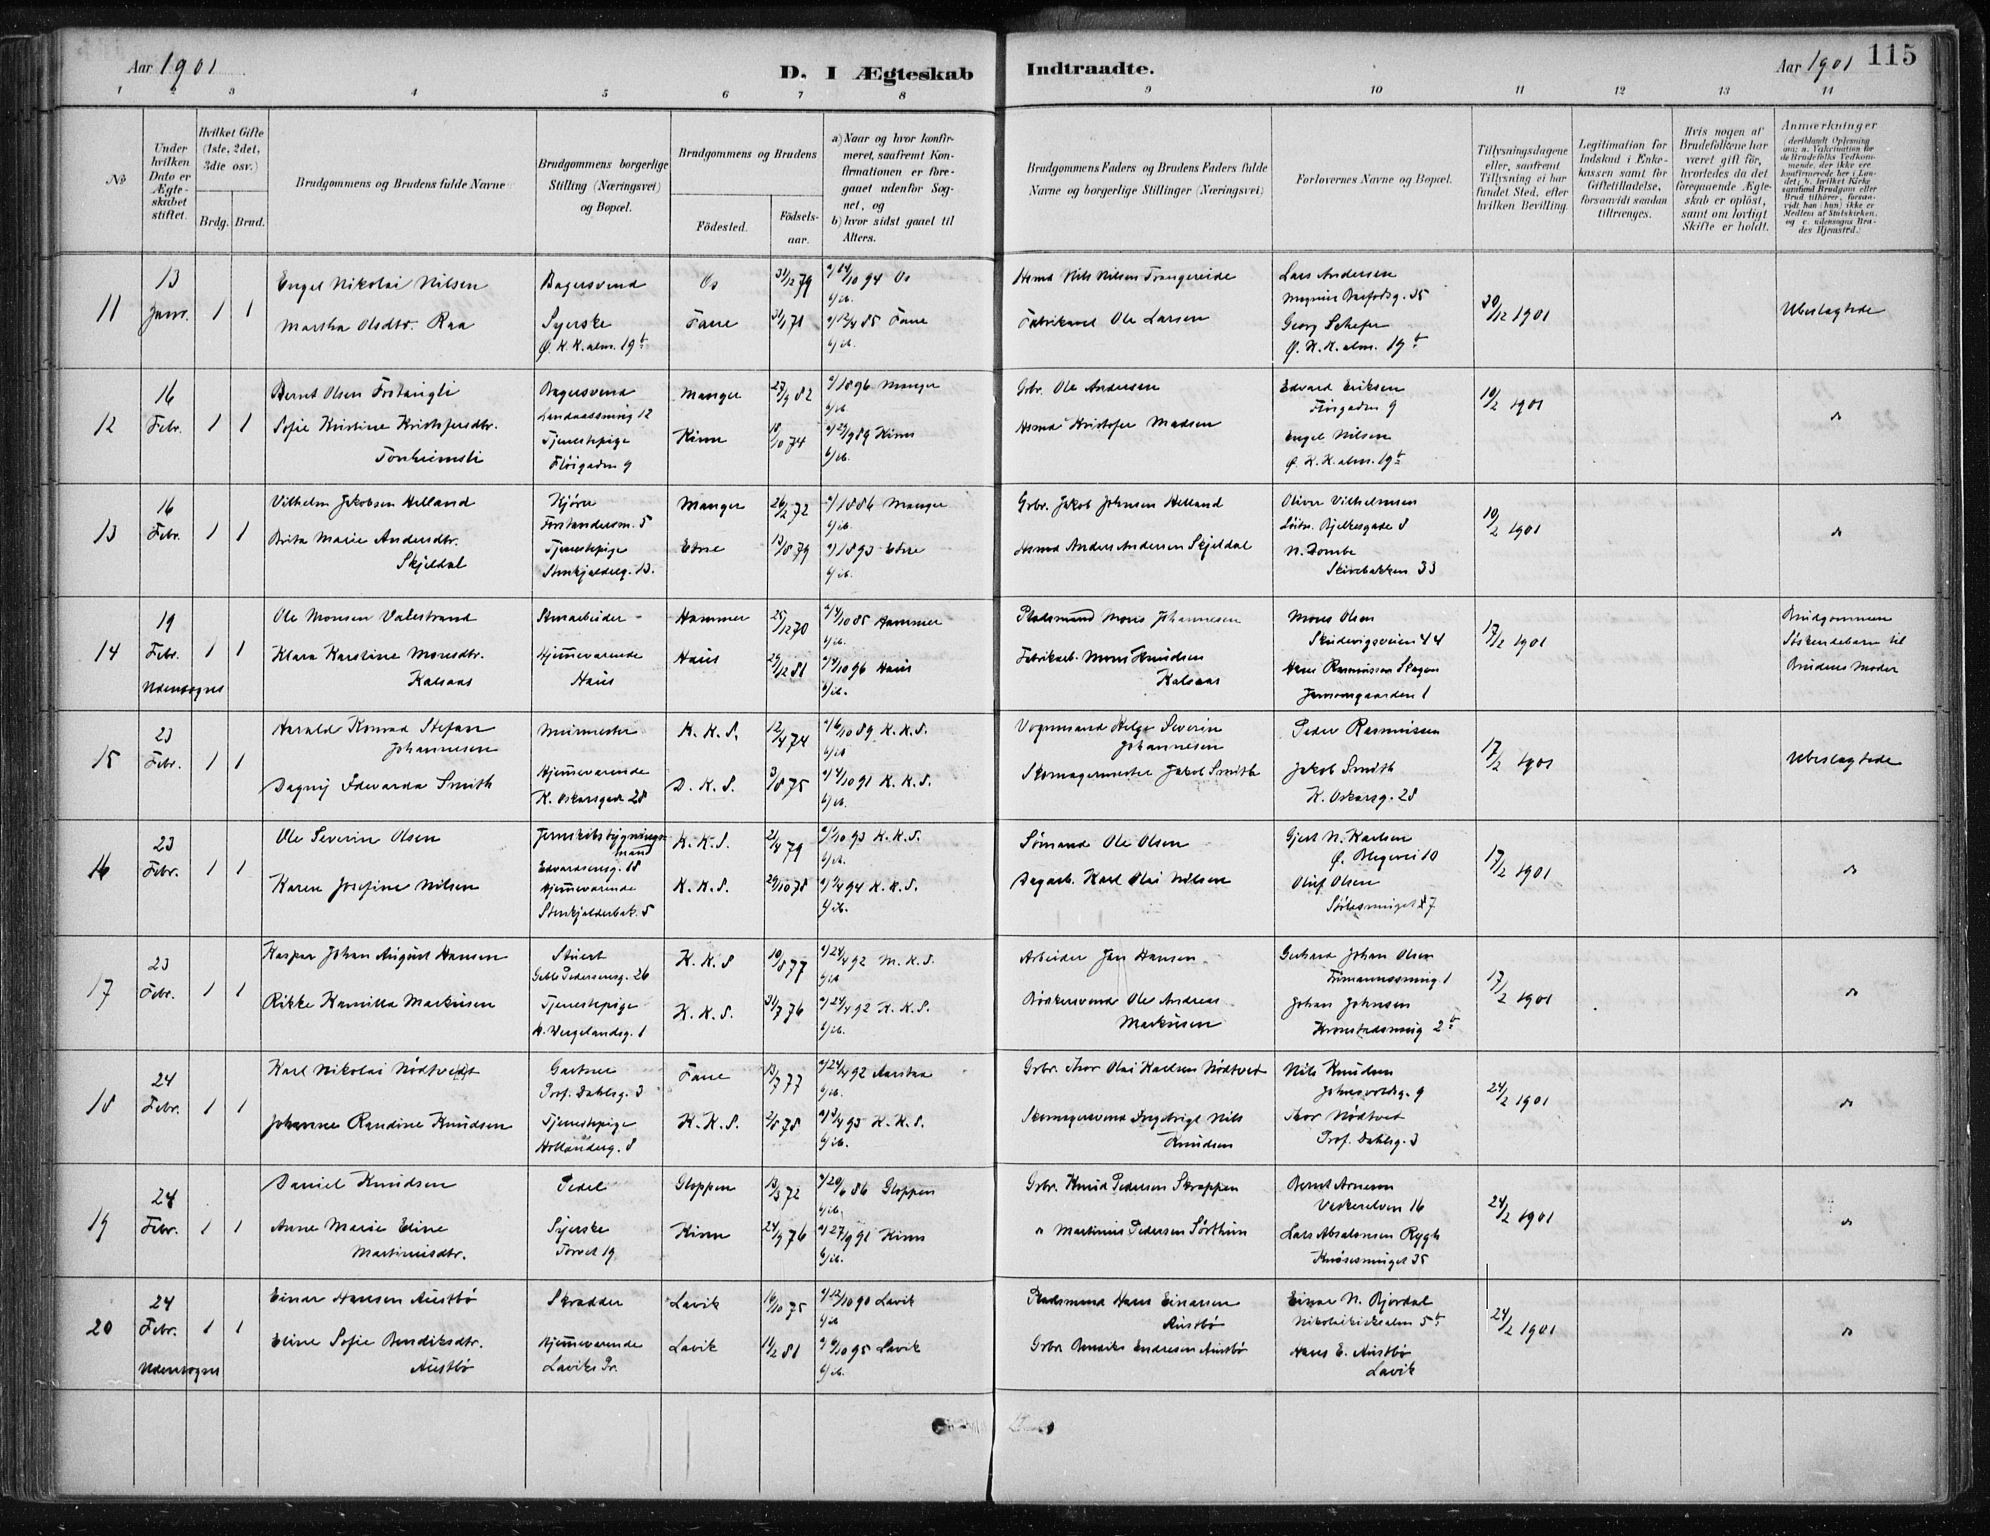 Aar 1901
D. I Ægteskab
Indtraadte.
Aar 1901
115
1 2 3 4 5 6 7 8 9 10 11 12 13 14
No
Under hvilken Dato er Ægteskabet stiftet.
Hvilket Gifte (1ste, 2det, 3die osv.)
Brdg. Brud.
Brudgommens og Brudens fulde Navne
Brudgommens borgerlige Stilling (Næringsvei) og Bopæl.
Brudgommens og Brudens
Fødested.
Fødselsaar.
a) Naar og hvor konfirmeret, saafremt Konfirmationen er foregaaet udenfor Sognet, og
b) hvor sidst gaaet til Alters.
Brudgommens Faders og Brudens Faders fulde Navne og borgerlige Stillinger (Næringsvei)
Forlovernes Navne og Bopæl.
Tillysningsdagene eller, saafremt Tillysning ei har fundet Sted, efter hvilken Bevilling.
Legitimation for Indskud i Enkekassen samt for Giftetilladelse, forsaavidt saadan tiltrænges.
Hvis nogen af Brudefolkene har været gift før, hvorledes da det foregaaende Ægteskab er opløst, samt om lovligt Skifte er holdt.
Anmærkninger
11 13 Janr. 1 1
Engel Nikolai Nilsen Bagersvend Os 31/12 79 a/ 14/10 94 Os
Hsmd Nils Nilsen Trangereide Lars Andersen
Magnus Barfodsg. 35
Martha Olsdtr. Raa Syerske Fane 31/1 71 a/ 12/4 85 Fane
Ø. K. K. alm. 19 b/ ib.
Fabrikarb Ole Larsen Georg Schefer
Ø. K. K. alm. 19
30/12 1901 Ubeslægtede
12 16 Febr. 1 1
Bernt Olsen Fostangli Bagersvend Manger 27/9 82 a/ 1896 Manger
Landaassming 12 b/ ib.
Grbr. Ole Andersen Edvard Eriksen
Fløigaden 9
Sofie Kristine Kristofersdtr. Tjenestepige Kinn 18/10 74 a/ 29/9 89 Kinn
Fløigaden 9 b/ ib.
Hsmd Kristofer Madsen Engel Nilsen
Ø. K. K. alm. 19
10/2 1901 do
13 16 Febr. 1 1
Vilhelm Jakobsen Helland Kjører Manger 26/2 72 a/ 1886 Manger
Forstandersm. 5 b/ ib.
Grbr. Jakob Johnsen Helland Oliver Vilhelmsen
Løitn. Bjelkesgade 8
Brita Marie Andersdtr. Tjenestepige Etne 13/8 79 a/ 1893 Etne
Skjeldal Stenkjelderg. 13. b/ ib.
Hsmd Anders Andersen Skjeldal N. Dombe
Skivebakken 33
10/2 1901 do
14 19 Febr. 1 1 Udensogns
Ole Monsen Valestrand Stenarbeider Hammer 25/12 70 a/ 4/10 85 Hammer
b/ ib.
Pladsmand Mons Johannesen Mons Olsen
Skudevigsveien 44
Klara Karstine Monsdtr. Hjemmeværende Haus 29/12 81 a/ 4/10 96 Haus
Kalsaas Haus b/ ib.
Fabrikarb. Mons Knudsen Hans Rasmussen Skagen
Kalsaas Jansonsgaarden 1
17/2 1901 Brudgommen
Søskendebarn til
Brudens Moder
15 23 Febr. 1 1
Harald Konrad Stefan Murmester K. K. S. 12/4 74 a/ 6/10 89 K. K. S.
Johannesen b/ ib
Vognmand Helge Severin Peder Rasmussen
Johannesen
Dagny Edvarda Smith Hjemmeværende D. K. S. 3/8 75 a/ 4/10 91 K. K. S.
K. Oskarsgade 28 b/ ib.
Skomagermester Jakob Smith Jakob Smith
K. Oskarsg. 28
17/2 1901 Ubeslægtede
16 23 Febr. 1 1
Ole Severin Olsen Jernskibsbygningsmand K. K. S. 21/4 79 a/ 1/10 93 K. K. S.
Edvardsensg. 18 b/ ib.
Sømand Ole Olsen Gjert N. Karlsen
Ø. Blegevei 10
Karen Josefine Nilsen Hjemmeværende K. K. S. 29/10 78 a/ 8/4 94 K. K. S.
Stenkjelderbak. 5 b/ ib.
Dagarb. Karl Olai Nilsen Oluf Olsen
17/2 1901 do
17 23 Febr. 1 1
Kaspar Johan August Hansen Stuert K. K. S 10/8 77 a/ 24/4 92 M. K. S.
Geble Pedersensg. 26 b/ ib.
Arbeider Jan Hansen Gerhard Johan Olsen
Rikke Kamilla Markusen Tjenestepige K. K. S. 31/7 76 a/ 24/4 92 K. K. S.
H. Vergelandsg. 1 b/ ib.
Bødkersvend Ole Andreas Johan Johnsen
Markusen
17/2 1901 do
18 24 Febr. 1 1
Karl Nikolai Nødtvedt Gartner Fane 13/7 77 a/ 24/4 92 Aarstad
Prof. Dahlsg. 3 b/ ib.
Grbr. Thor Olai Karlsen Nødtvet Nils Knudsen
Johnsvoldsg. 9
Johanne Randine Knudsen Tjenestepige K. K. S. 2/8 78 a/ 3/4 93 K. K. S.
Hollænderg. 8 b/ ib.
Skomagersvend Ingebrigt Nils Thor Nødtvet
Knudsen Prof. Dahlsg. 3
24/2 1901 do
19 24 Febr. 1 1
Daniel Knudsen Pedel Gloppen 13/3 72 a/ 20/6 86 Gloppen
b/ ib.
Grbr. Knud Pedersen Skrappen Bernt Arnesen
Veskerelven 16
Anne Marie Eline Syerske Kinn 24/9 76 a/ 27/9 91 Kinn
Martinusdtr. Torvet 19 b/ ib.
" Martinus Pedersen Sørthun Lars Absalonsen Rygh
Knøsesmuget 35
24/2 1901 do
20 24 Febr. 1 1 Udensogns
Einar Hansen Austbø Skrædder Lavik 16/10 75 a/ 12/10 90 Lavik
b/ ib
Pladsmand Hans Einarsen Einar N. Bjordal
Austbø Nikolaikirkealm 5
Eline Sofie Bendiksdtr. Hjemmeværende Lavik 14/2 81 a/ 6/10 95 Lavik
Austbø Laviks Pr. b/ ib.
Grbr. Bendiks Endresen Austbø Hans E. Austbø
Lavik
24/2 1901 do